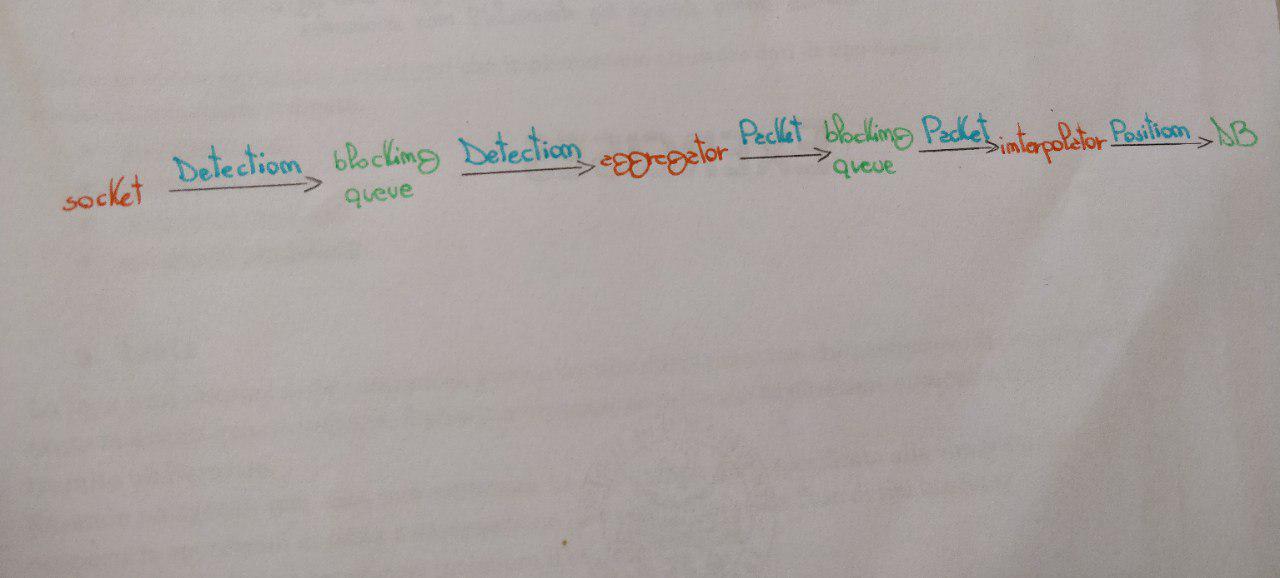 socket Detection blocking queue Detection aggregator Packet blocking queue Packet interpolator Position DB